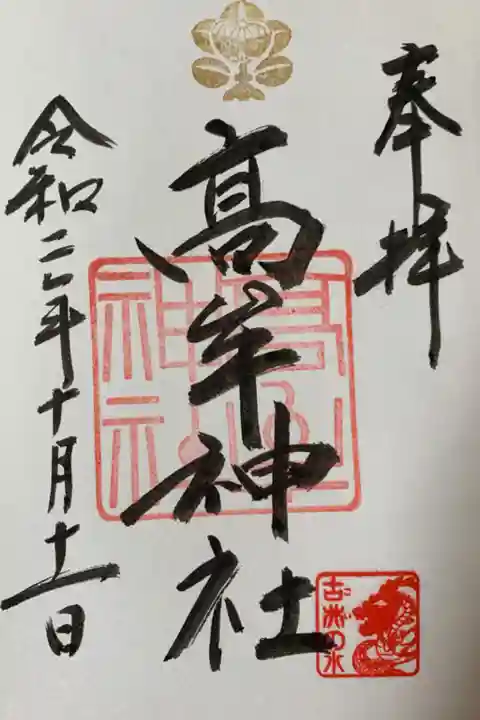 奉拝
高牟神社
令和二年十月十一日
古井の水